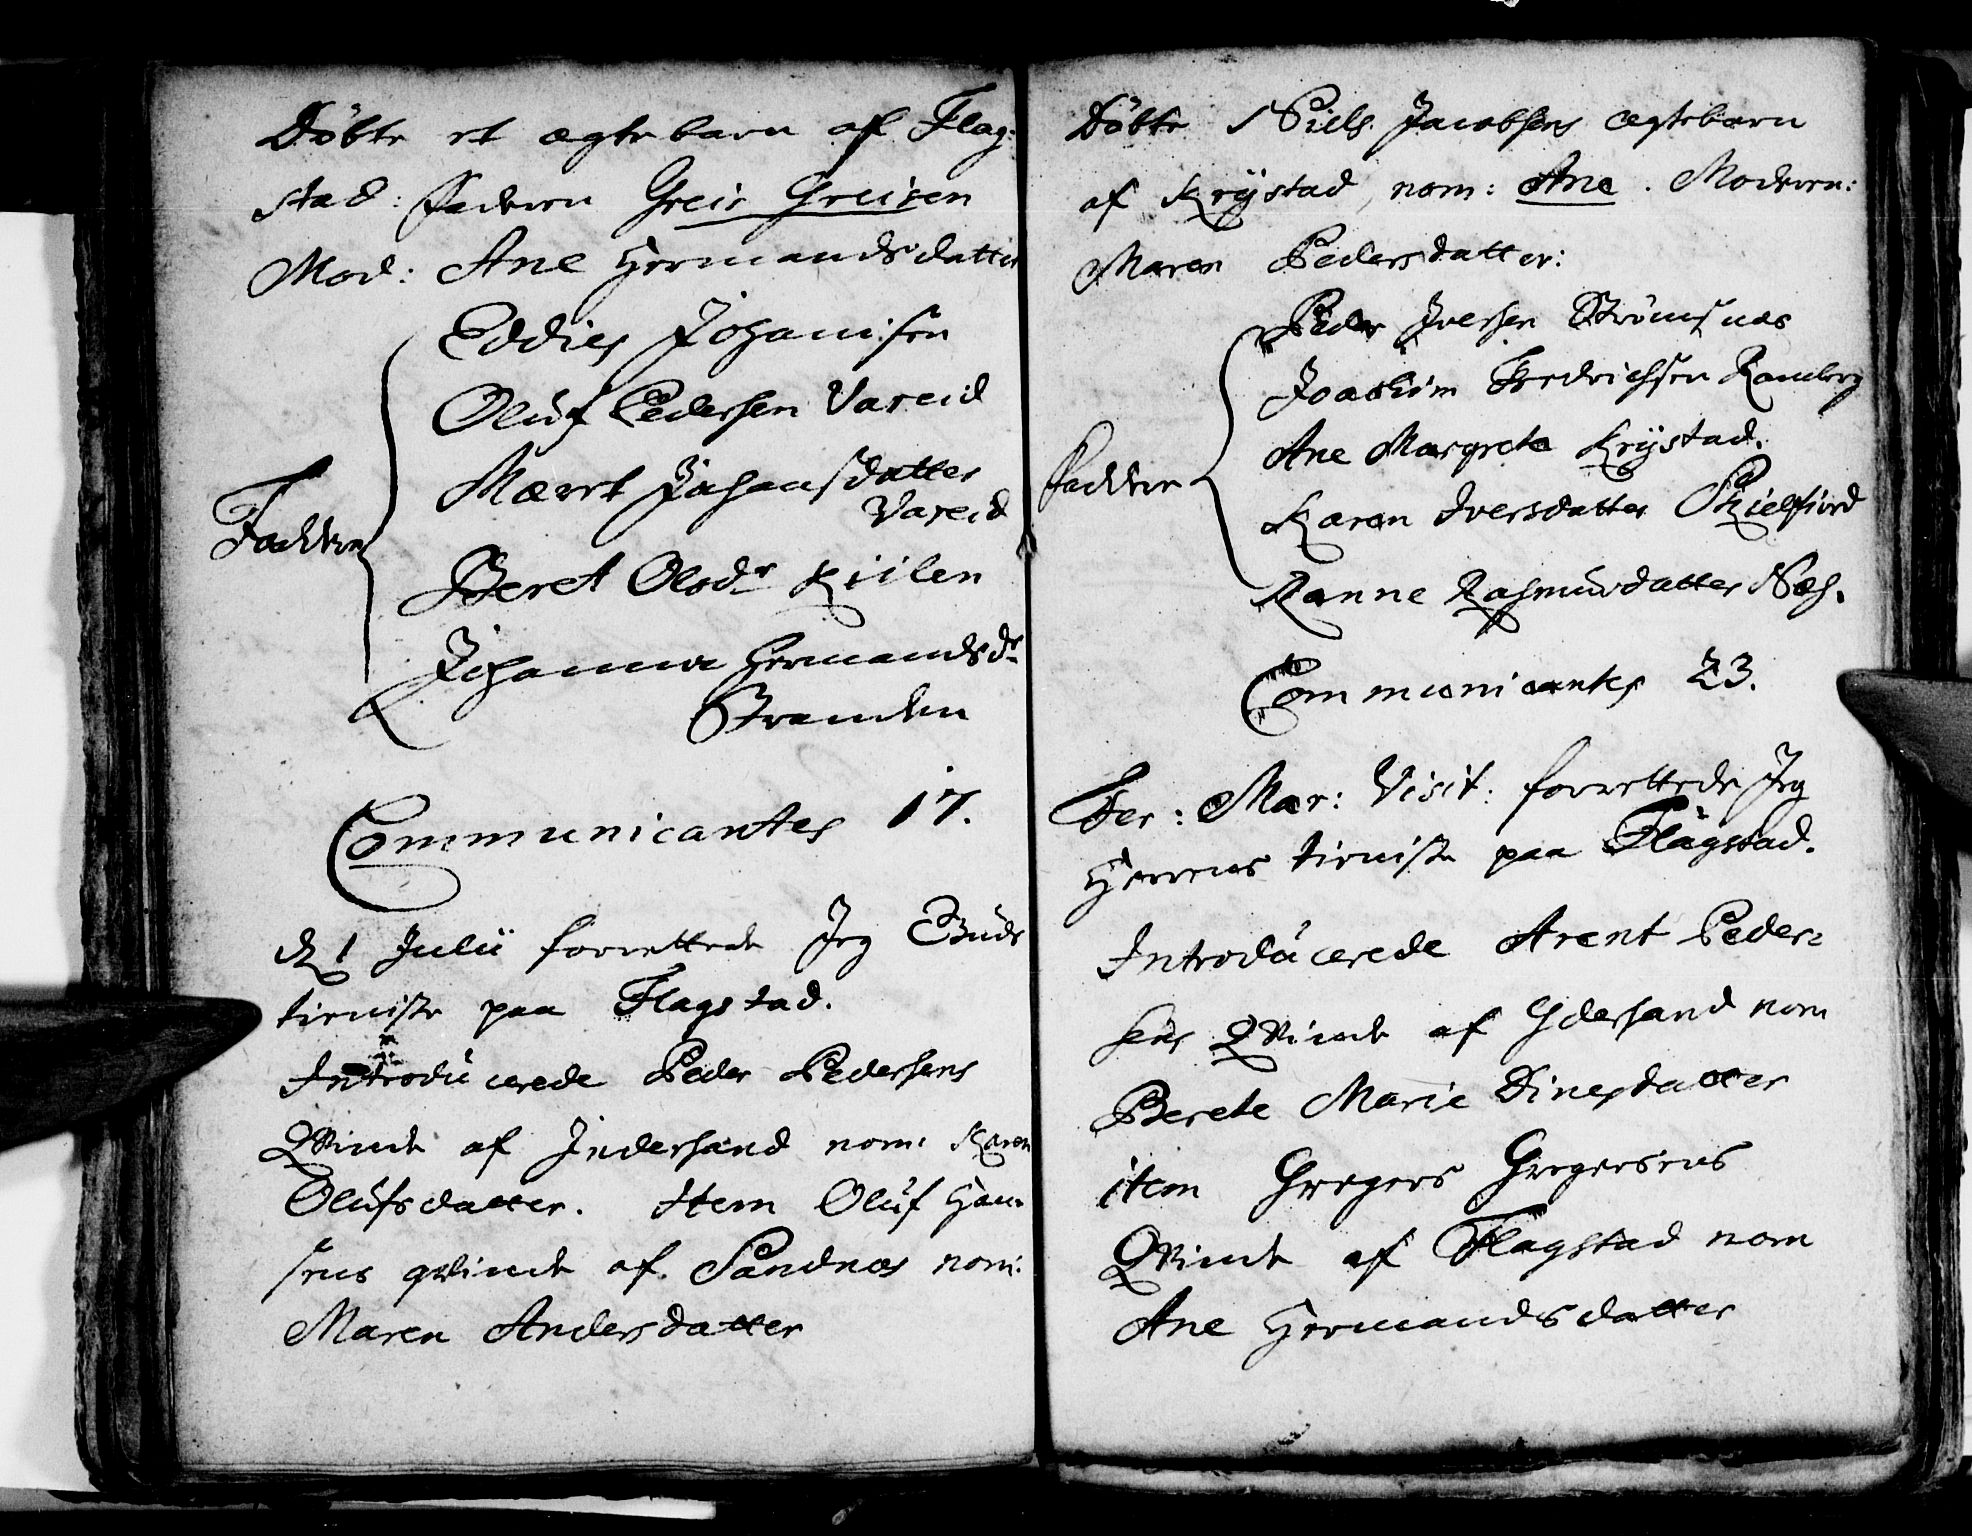 Döbte et ægte barn af Flag-
stad: Faderen Greis Greisen
Mod: Ane Hermandsdatter
Eddies Johansen
Oluf Pedersen Vareid
Mæret Johansdatter
Vareid
Faddere
Beret Olsdr Kiilen
Johanna Hermandsdr
Stranden
Communicantes 17.
d 1 Julii forrettede Jeg Guds
tieniste paa Flagstad.
Introducerede Peder Pedersens
Qvinde af Indersand nom: Karen
Olufsdatter. Item Oluf Han-
sens qvinde af Sandnæs nom:
Maren Andersdatter
Döbte Niels Jacobsens ægtebarn
af Krÿstad, nom: Ane. Moderen:
Maren Pedersdatter:
Peder Iversen Strömsnæs
Joachim Fredrichsen Ramberg
Ane Margrete Krÿstad.
Faddere
Karen Iversdatter Skielfiord
Ranne Rasmusdatter Næs.
Communicantes 23.
Fer: Mar: Visit: forrettede Jeg
Herrens tieniste paa Flagstad.
Introducerede Arent Peder-
sens Qvinde af Ydersand nom
Berete Marie Dinesdatter
item Gregers Gregersens
Qvinde af Flagstad nom
Ane Hermandsdatter